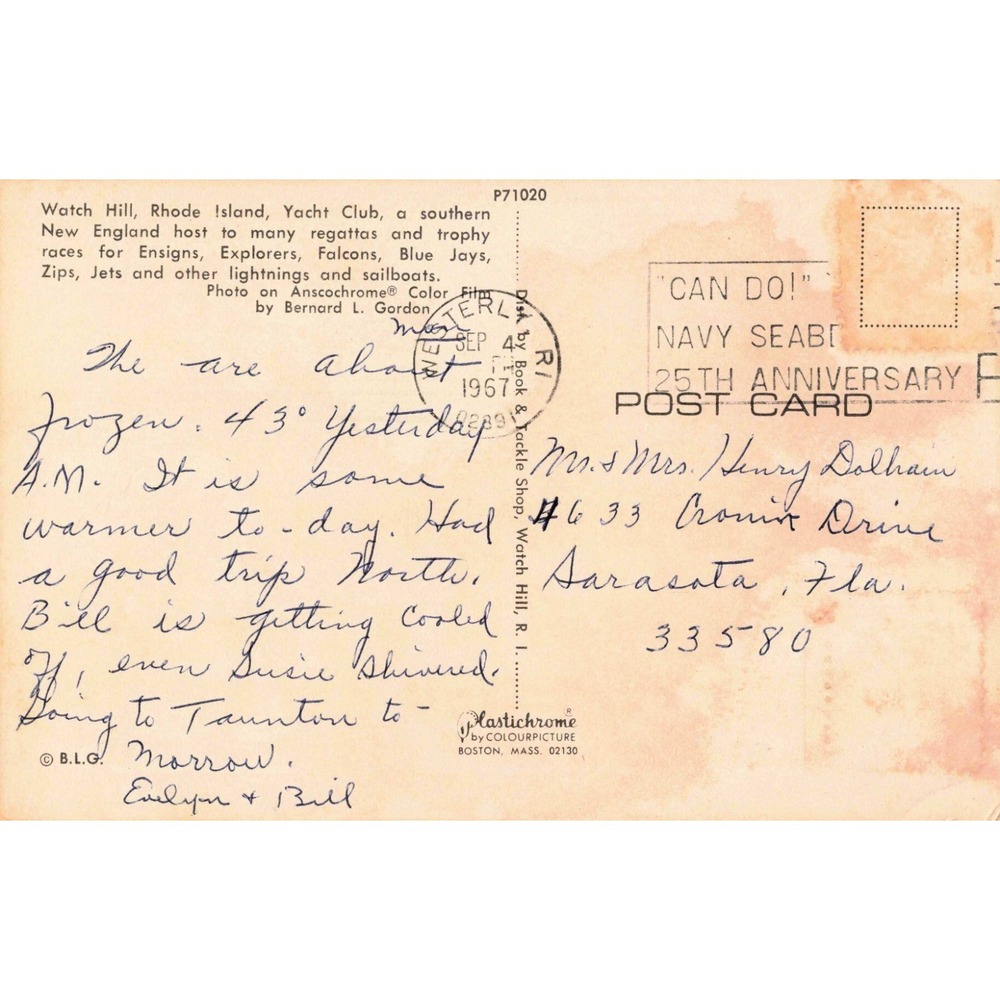 P71020
Watch Hill, Rhode Island, Yacht Club, a southern
New England host to many regattas and trophy
races for Ensigns, Explorers, Falcons, Blue Jays,
Zips, Jets and other lightnings and sailboats.
Photo on Anscochrome® Color Film
by Bernard L. Gordon
Mon
The are about
frozen. 43° Yesterday
A.M. It is some
warmer to-day. Had
a good trip North.
Bill is getting cooled
off, even Susie shivered.
Going to Taunton to-
morrow.
Evelyn + Bill
© B.L.G.
WESTERLY RI
SEP 4
1967
02891
Dist. by Book & Tackle Shop, Watch Hill, R. I.
"CAN DO!"
NAVY SEABE
25TH ANNIVERSARY
POST CARD
Mr. & Mrs. Henry Dolhain
#633 Cronin Drive
Sarasota, Fla.
33580
Plastichrome®
by COLOURPICTURE
BOSTON, MASS. 02130